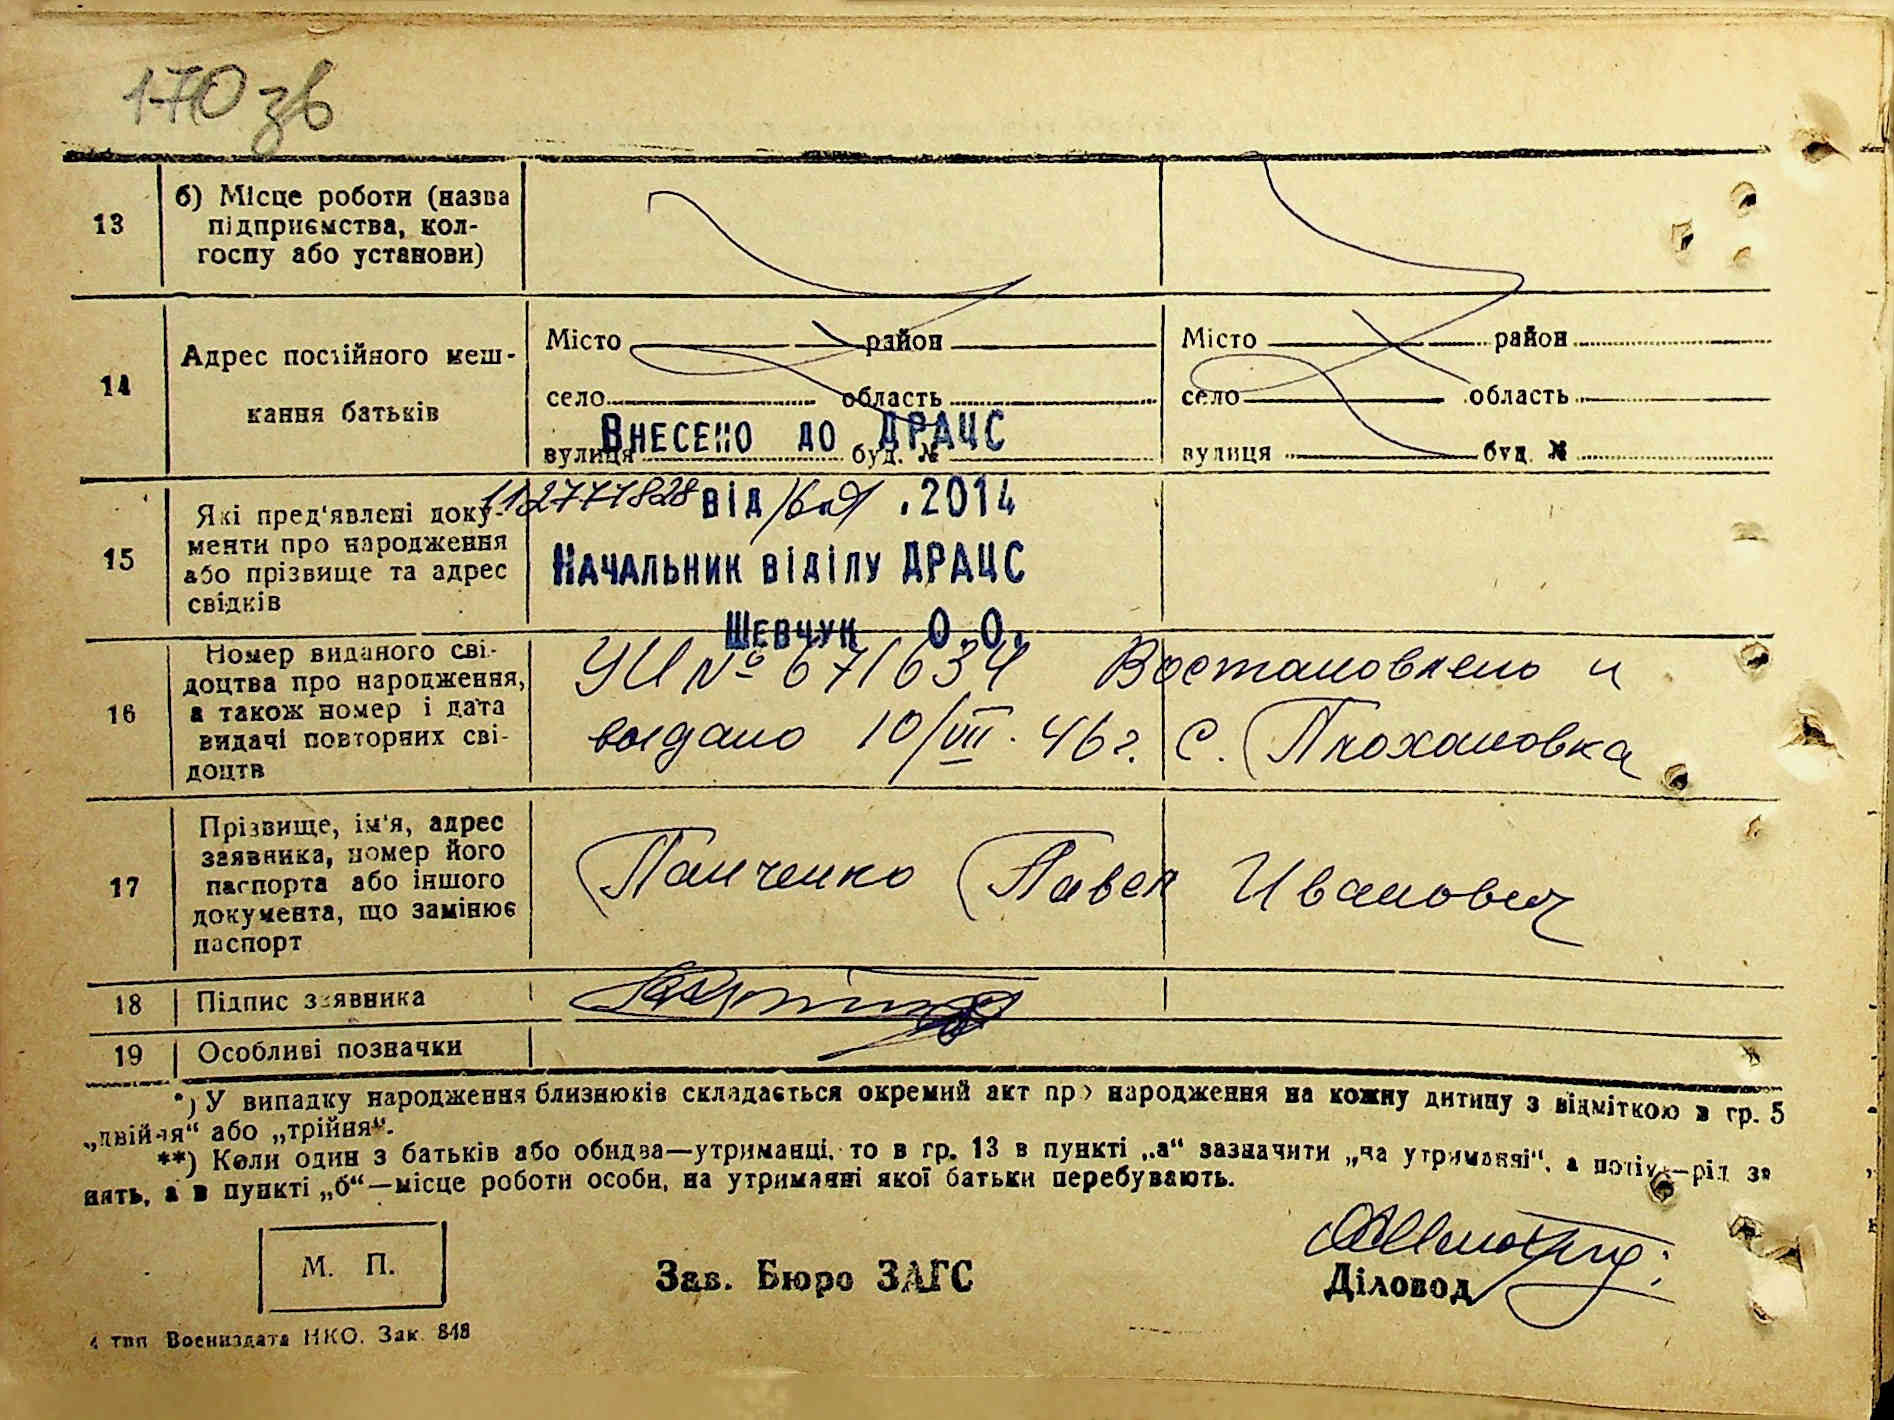 170 зв
13
б) Місце роботи (назва
підприємства, кол-
госпу або установи)
14
Адрес постійного меш-
кання батьків
Місто район
село область
вулиця буд. №
Місто район
село область
вулиця буд. №
Внесено до ДРАЦС
112777828 від 16.01 .2014
Начальник відділу ДРАЦС
Шевчук О.О.
15
Які пред'явлені доку-
менти про народження
або прізвище та адрес
свідків
16
Номер виданого сві-
доцтва про народження,
а також номер і дата
видачі повторних сві-
доцтв
УИ № 671634 Востановлено и
выдано 10/VIII. 46 г. с. Плохановка
17
Прізвище, ім'я, адрес
заявника, номер його
паспорта або іншого
документа, що замінює
паспорт
Панченко Павел Иванович
18 Підпис заявника
19 Особливі позначки
*) У випадку народження близнюків складається окремий акт про народження на кожну дитину з відміткою в гр. 5
„двійня“ або „трійня“.
**) Коли один з батьків або обидва—утриманці, то в гр. 13 в пункті „а“ зазначити „на утриманні“, а
нять, а в пункті „б“—місце роботи особи, на утриманні якої батьки перебувають.
М. П.
Зав. Бюро ЗАГС
Діловод
4 тип Воениздата НКО. Зак. 848